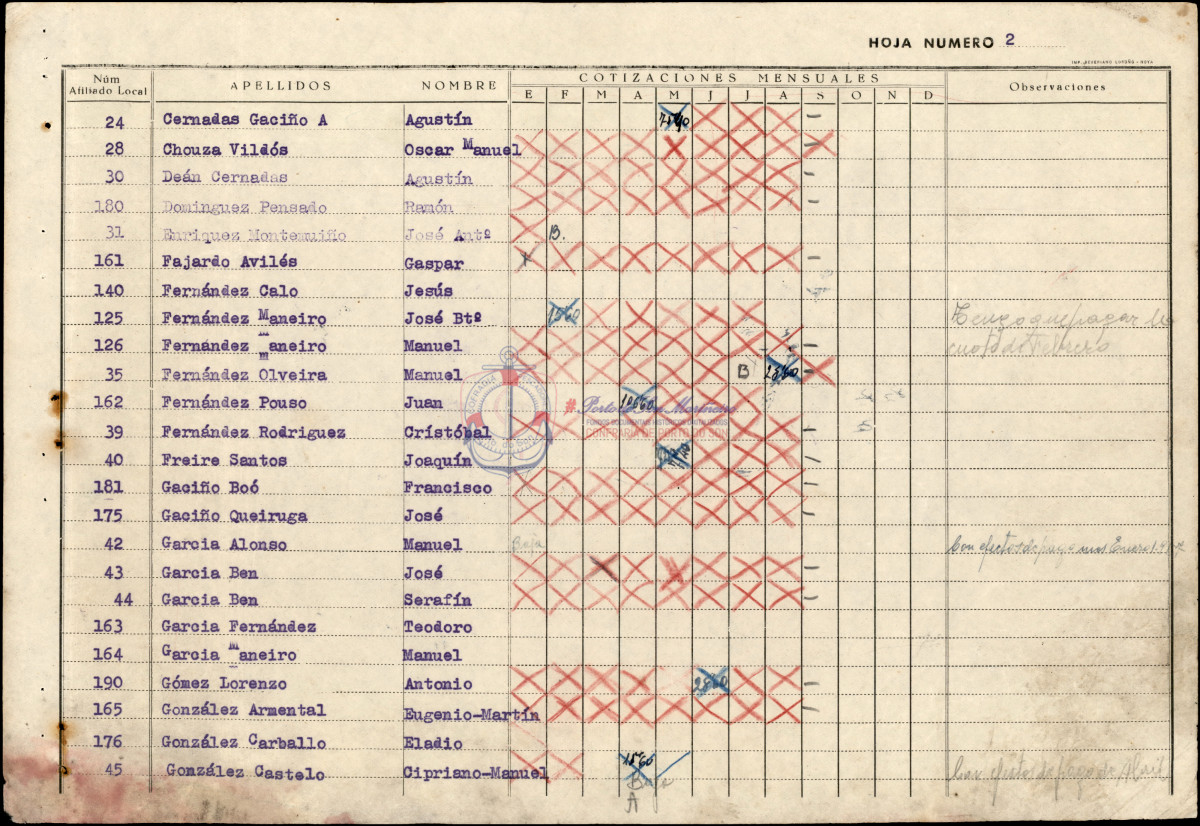 HOJA NUMERO 2
Núm Afiliado Local APELLIDOS NOMBRE COTIZACIONES MENSUALES Observaciones
E F M A M J J A S O N D
24 Cernadas Gaciño A Agustín
28 Chouza Vildós Oscar Manuel
30 Deán Cernadas Agustín
180 Dominguez Pensado Ramón
31 Enriquez Montemuiño José Antº B.
161 Fajardo Avilés Gaspar
140 Fernández Calo Jesús
125 Fernández Maneiro José Btº
126 Fernández maneiro Manuel cuota de Febrero
35 Fernández Olveira Manuel B
162 Fernández Pouso Juan
# Porto do Son Mariñeiro
FONDOS DOCUMENTAIS HISTÓRICOS DIGITALIZADOS
CONFRARÍA DE PORTO DO SON
39 Fernández Rodriguez Cristóbal
40 Freire Santos Joaquín
181 Gaciño Boó Francisco
175 Gaciño Queiruga José
42 Garcia Alonso Manuel Baja
43 Garcia Ben José
44 Garcia Ben Serafín
163 Garcia Fernández Teodoro
164 Garcia maneiro Manuel
190 Gómez Lorenzo Antonio
165 González Armental Eugenio-Martín
176 González Carballo Eladio
45 González Castelo Cipriano-Manuel Con efectos de pago de Abril
Baja
A